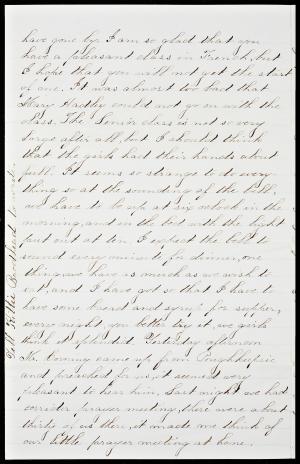 have gone by. I am so glad that you
have a pleasant class in French, but
I hope that you will not get the start
of me. It was almost too bad that
Mary Hartley could not go on with the
class. The Senior class is not so very
large after all, but I should think
that the girls had their hands about
full. It seems so strange to do every
thing so at the sounding of the bell,
we have to be up at six o'clock in the
morning, and in the bed with the light
put out at ten. I expect the bell to
sound every minute for dinner, one
thing we have as much as we wish to
eat, and I have got so that I have to
have some bread and syrup for supper,
every night, you better try it, we girls
think it splendid. Yesterday afternoon
Mr. came up from Poughkeepsie
and preached for us, it seemed very
pleasant to hear him, Last night we had
corridor prayer meeting, there were about
thirty of us there, it made me think of
our little prayer meeting at home.
Tell Hattie